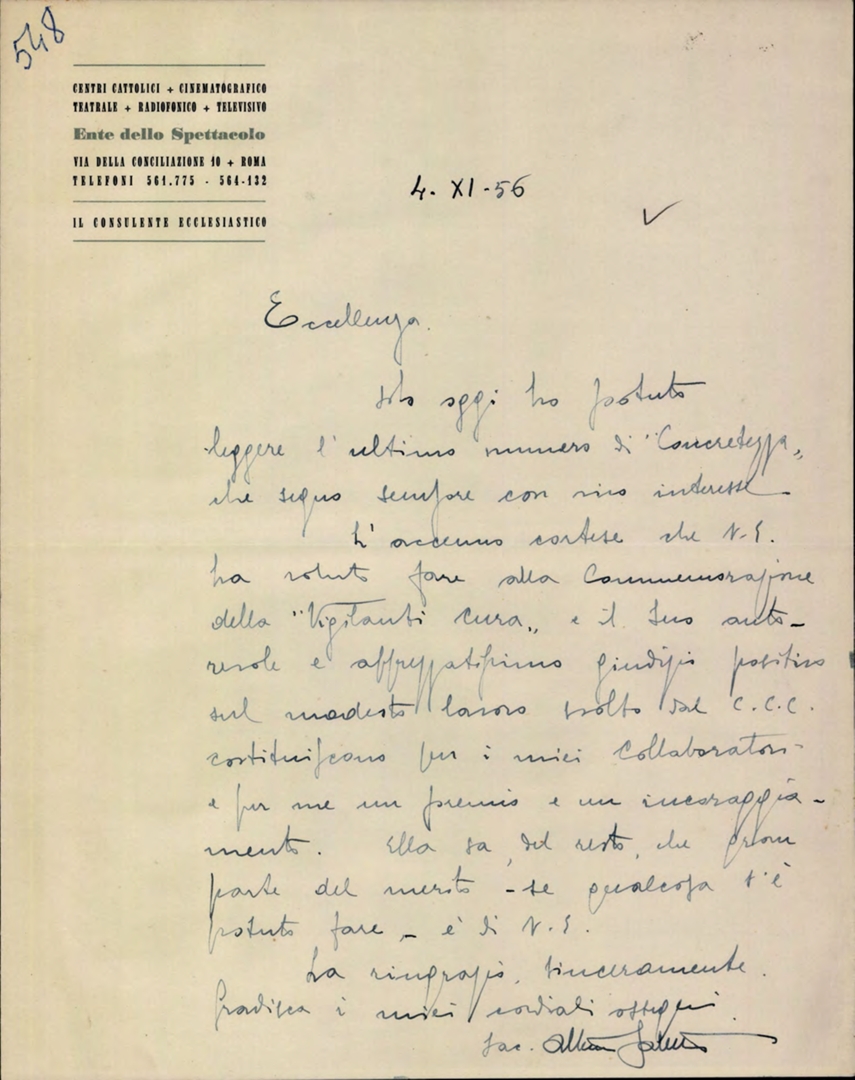 548
CENTRI CATTOLICI + CINEMATOGRAFICO
TEATRALE + RADIOFONICO + TELEVISIVO
Ente dello Spettacolo
VIA DELLA CONCILIAZIONE 10 + ROMA
TELEFONI 561.775 - 564-132
IL CONSULENTE ECCLESIASTICO
4. XI - 56
Eccellenza.
solo oggi ho potuto
leggere l'ultimo numero di "Concretezza„
che seguo sempre con vivo interesse
L'accenno cortese che V.E.
ha voluto fare alla Commemorazione
della "Vigilanti Cura„ e il Suo auto-
revole e apprezzatissimo giudizio positivo
sul modesto lavoro svolto dal C.C.C.
costituiscono per i miei Collaboratori
e per me un premio e un incoraggia-
mento. Ella sa, del resto, che gran
parte del merito - se qualcosa s'è
potuto fare - è di V.E.
La ringrazio, sinceramente.
Gradisca i miei cordiali ossequi.
sac.